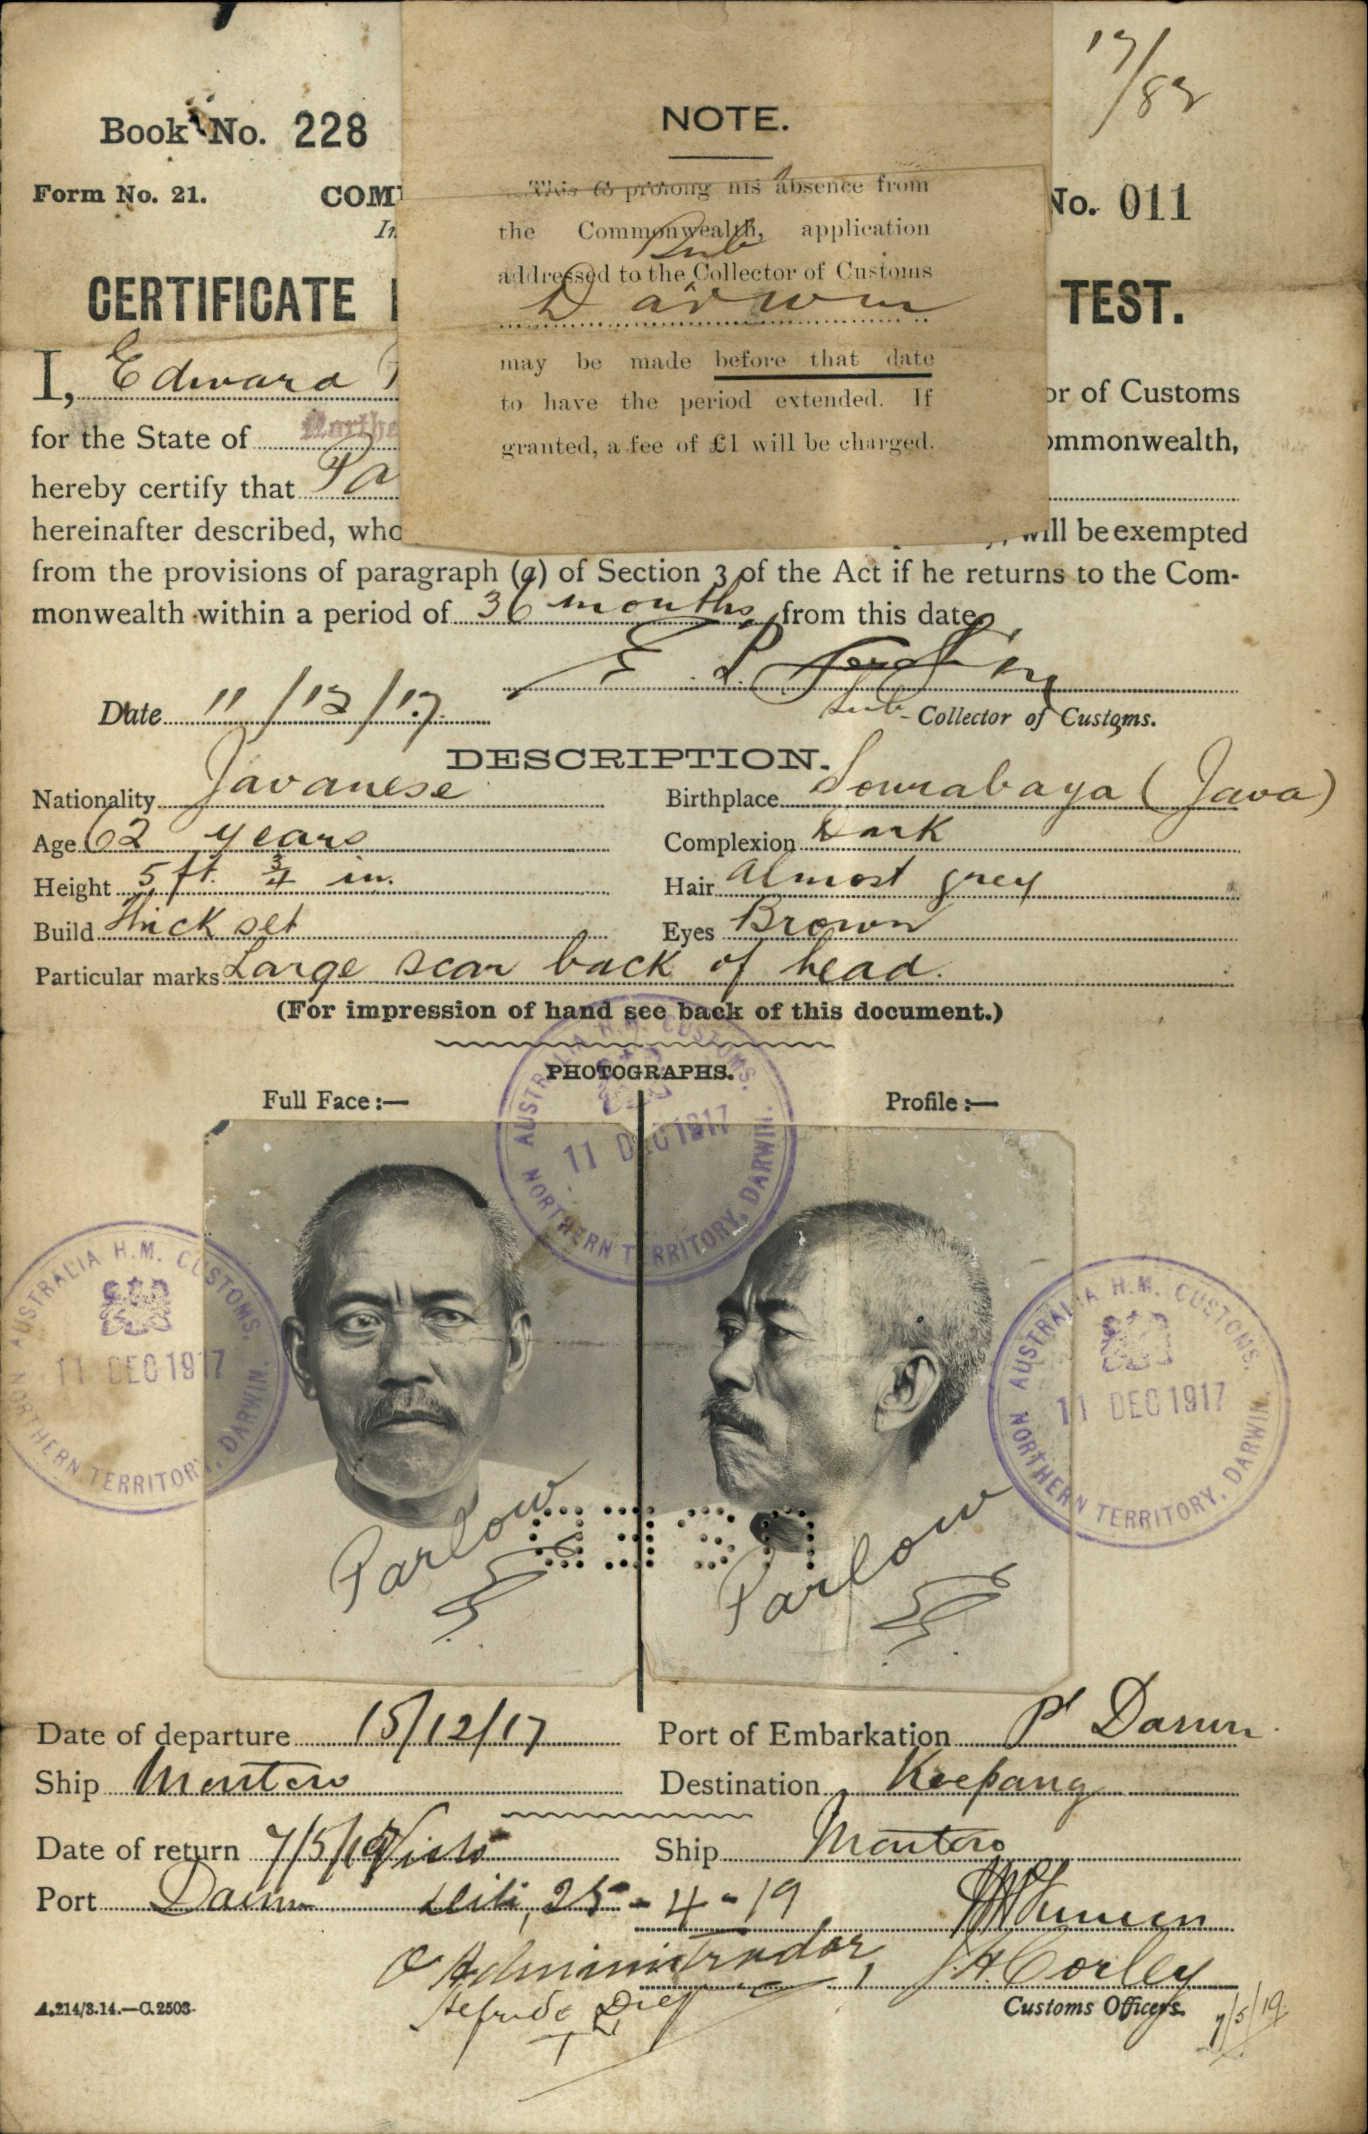 17/82
Book No. 228
Form No. 21.
COM
No. 011
In
NOTE.
This to prolong his absence from
the Commonwealth, application
Sub
addressed to the Collector of Customs
Darwin
may be made before that date
to have the period extended. If
granted, a fee of £1 will be charged.
CERTIFICATE TEST.
I, Edward or of Customs
for the State of Northe ommonwealth,
hereby certify that Pa
hereinafter described, who will be exempted
from the provisions of paragraph (a) of Section 3 of the Act if he returns to the Com-
monwealth within a period of 36 months from this date.
Date 11/12/17
Sub- Collector of Customs.
DESCRIPTION.
Nationality Javanese Birthplace Sourabaya (Java)
Age 62 years Complexion Dark
Height 5 ft. 3/4 in. Hair almost grey
Build Thick set Eyes Brown
Particular marks Large scar back of head.
(For impression of hand see back of this document.)
PHOTOGRAPHS.
Full Face:— Profile:—
AUSTRALIA H.M. CUSTOMS.
11 DEC 1917
NORTHERN TERRITORY, DARWIN.
AUSTRALIA H.M. CUSTOMS.
11 DEC 1917
NORTHERN TERRITORY, DARWIN.
AUSTRALIA H.M. CUSTOMS.
11 DEC 1917
NORTHERN TERRITORY, DARWIN.
Parlow
Parlow
Date of departure 15/12/17 Port of Embarkation Pt Darwin
Ship Montoro Destination Koepang
Date of return 7/5/19 Visto Ship Montoro
Port Darwin Dili, 25-4-19
O Administrador, J.H. Corley
A.214/3.14.—C.2503. Customs Officers. 7/5/19